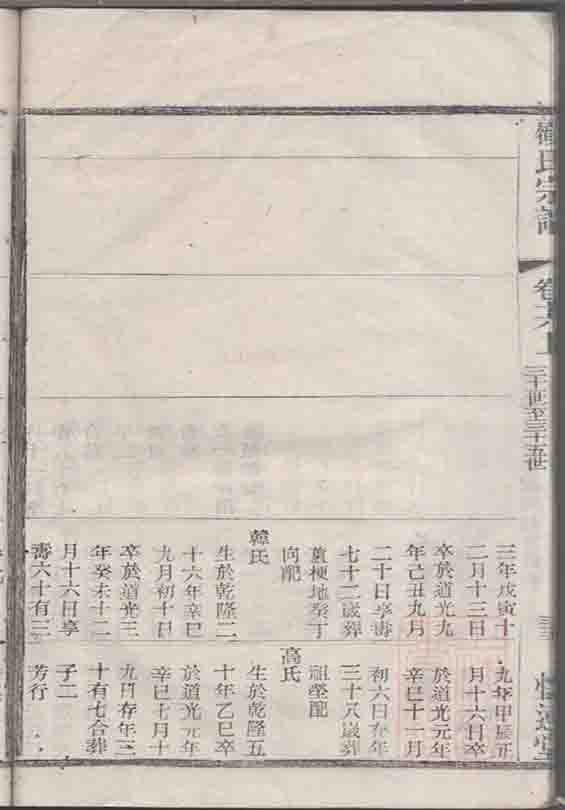 氏宗譜
卷六上
三年戊寅十
二月十三日
卒於道光九
年己丑九月
二十日享壽
七十二歲葬
梗地癸丁
向配
韓氏
生於乾隆二
十六年辛巳
九月初十日
卒於道光三
年癸未十二
月十六日享
壽六十有三
九年甲辰正
月十六日卒
於道光元年
辛巳十一月
初六日存年
三十八歲葬
祖塋配
高氏
生於乾隆五
十年乙巳卒
於道光元年
辛巳七月十
九日存年三
十有七合葬
子二
芳行